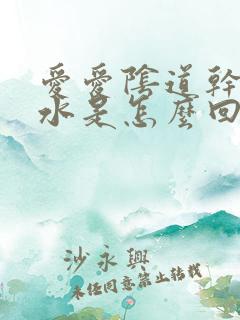 愛愛陰道幹
水是怎麼回
沙永興
未经同意禁止转载